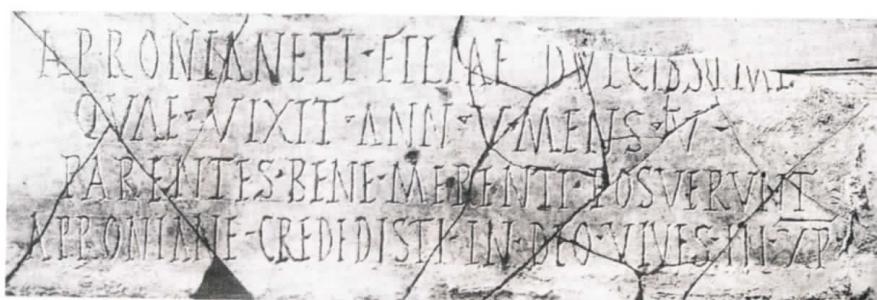 APRONIANETI · FILIAE DVLCISSIME
QVAE · VIXIT · ANN · V · MENS · V ·
PARENTES · BENE · MERENTI · POSVERVNT
APRONIANE · CREDEDISTI · IN · DEO · VIVES · IN · XP